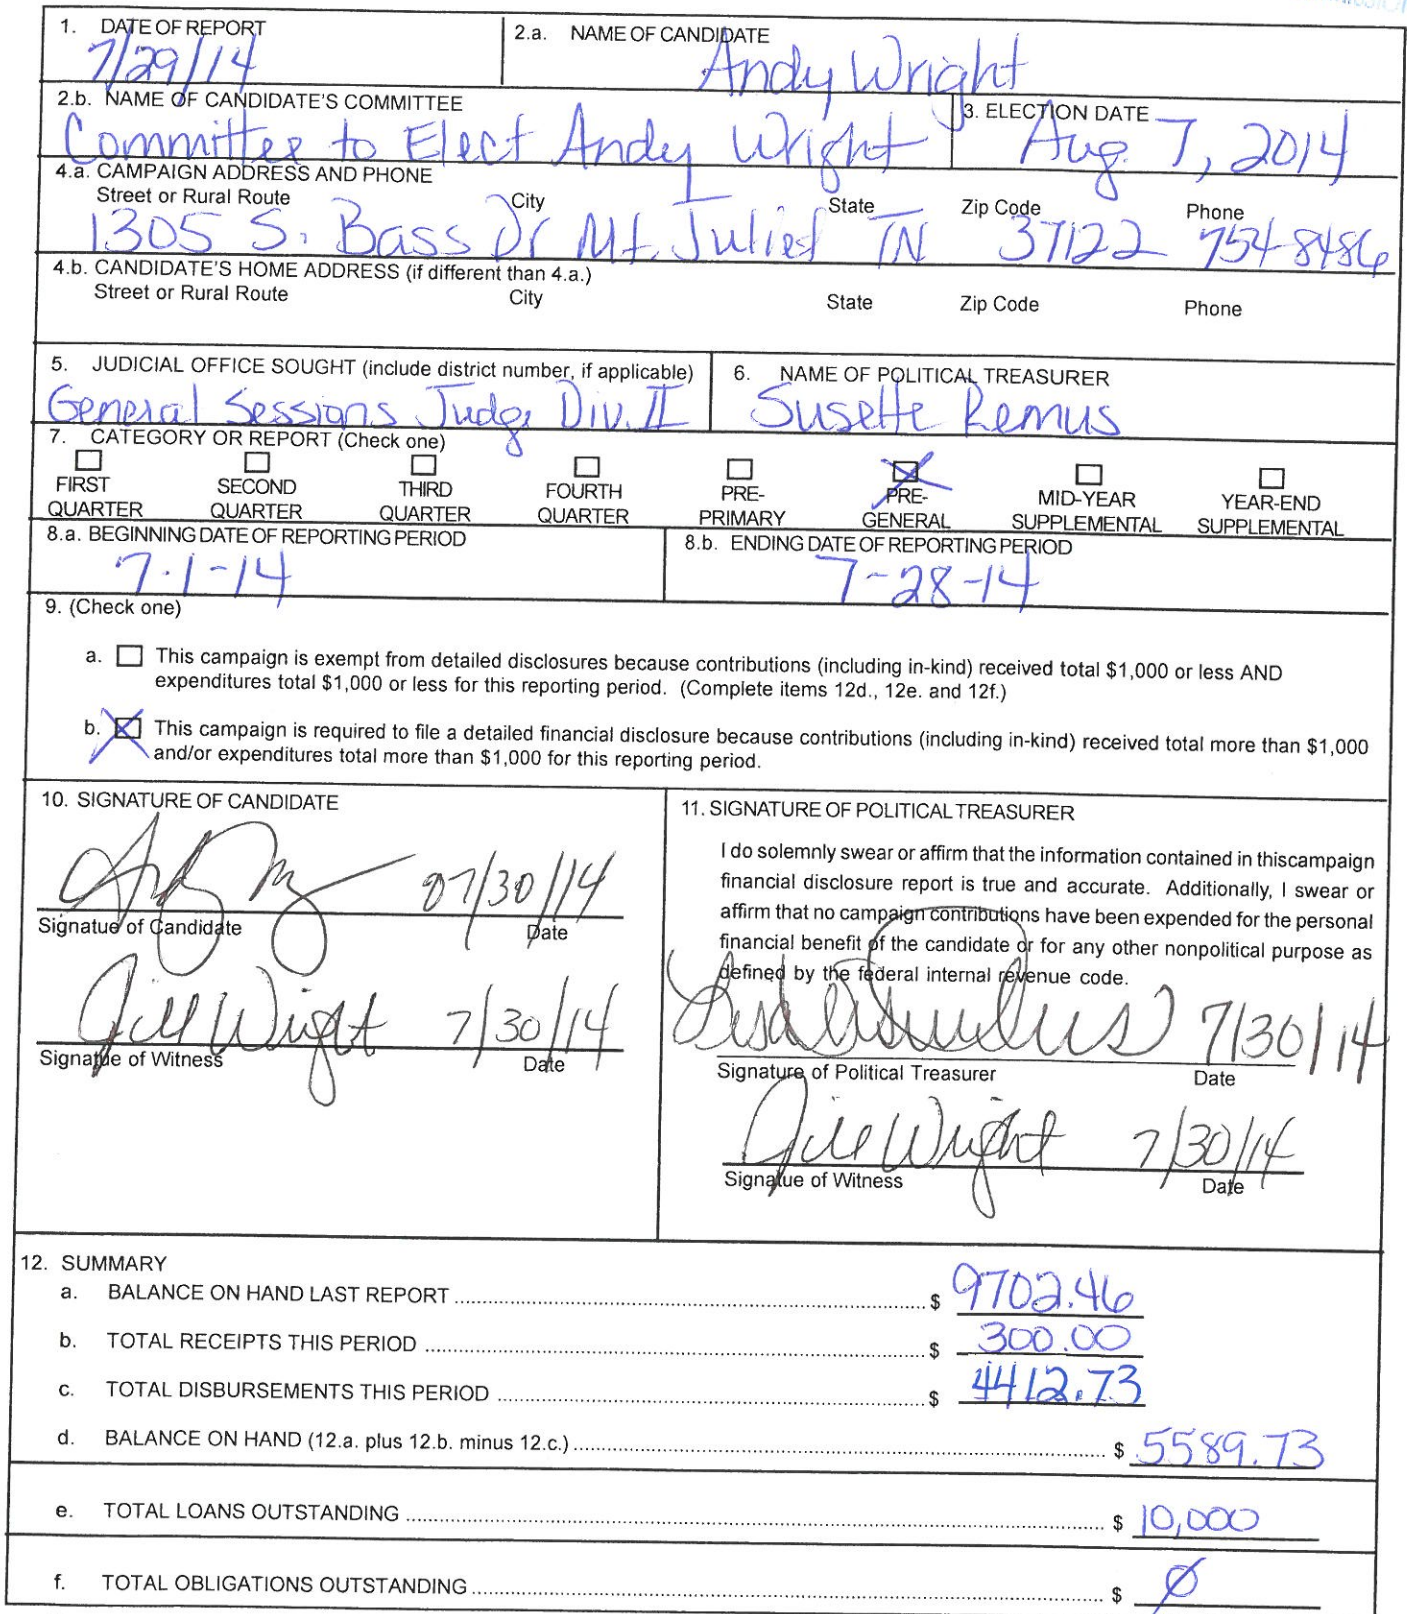 1. DATE OF REPORT
7/29/14
2.a. NAME OF CANDIDATE
Andy Wright
2.b. NAME OF CANDIDATE'S COMMITTEE
Committee to Elect Andy Wright
3. ELECTION DATE
Aug. 7, 2014
4.a. CAMPAIGN ADDRESS AND PHONE
Street or Rural Route City State Zip Code Phone
1305 S. Bass Dr Mt. Juliet TN 37122 754-8486
4.b. CANDIDATE'S HOME ADDRESS (if different than 4.a.)
Street or Rural Route City State Zip Code Phone
5. JUDICIAL OFFICE SOUGHT (include district number, if applicable)
General Sessions Judge Div. II
6. NAME OF POLITICAL TREASURER
Susette Remus
7. CATEGORY OR REPORT (Check one)
FIRST QUARTER
SECOND QUARTER
THIRD QUARTER
FOURTH QUARTER
PRE-PRIMARY
PRE-GENERAL
MID-YEAR SUPPLEMENTAL
YEAR-END SUPPLEMENTAL
8.a. BEGINNING DATE OF REPORTING PERIOD
7-1-14
8.b. ENDING DATE OF REPORTING PERIOD
7-28-14
9. (Check one)
a. This campaign is exempt from detailed disclosures because contributions (including in-kind) received total $1,000 or less AND
expenditures total $1,000 or less for this reporting period. (Complete items 12d., 12e. and 12f.)
b. This campaign is required to file a detailed financial disclosure because contributions (including in-kind) received total more than $1,000
and/or expenditures total more than $1,000 for this reporting period.
10. SIGNATURE OF CANDIDATE
07/30/14
Signatue of Candidate Date
Jill Wright 7/30/14
Signatue of Witness Date
11. SIGNATURE OF POLITICAL TREASURER
I do solemnly swear or affirm that the information contained in thiscampaign
financial disclosure report is true and accurate. Additionally, I swear or
affirm that no campaign contributions have been expended for the personal
financial benefit of the candidate or for any other nonpolitical purpose as
defined by the federal internal revenue code.
7/30/14
Signature of Political Treasurer Date
Jill Wright 7/30/14
Signatue of Witness Date
12. SUMMARY
a. BALANCE ON HAND LAST REPORT $ 9702.46
b. TOTAL RECEIPTS THIS PERIOD $ 300.00
c. TOTAL DISBURSEMENTS THIS PERIOD $ 4412.73
d. BALANCE ON HAND (12.a. plus 12.b. minus 12.c.) $ 5589.73
e. TOTAL LOANS OUTSTANDING $ 10,000
f. TOTAL OBLIGATIONS OUTSTANDING $ Ø